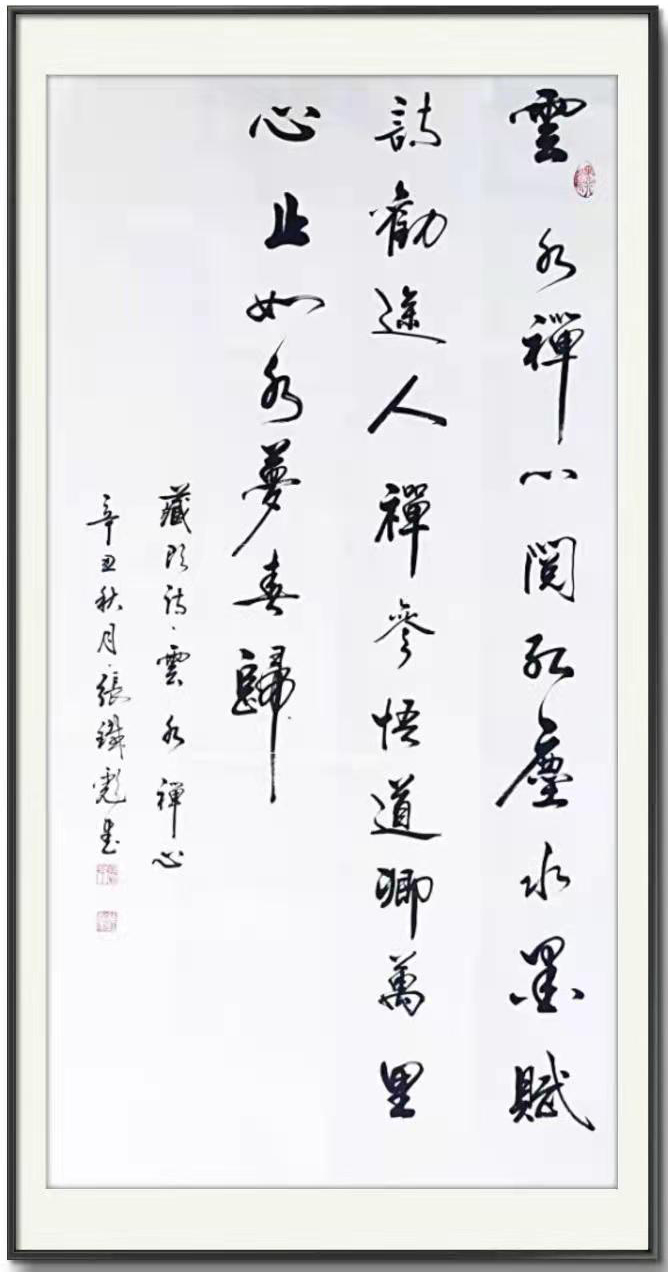 雲水禪心閱紅塵水墨賦
詩勸途人禪參悟道卿萬里
心止如水夢春歸
藏頭詩·雲水禪心
辛丑秋月·張鐵彪書